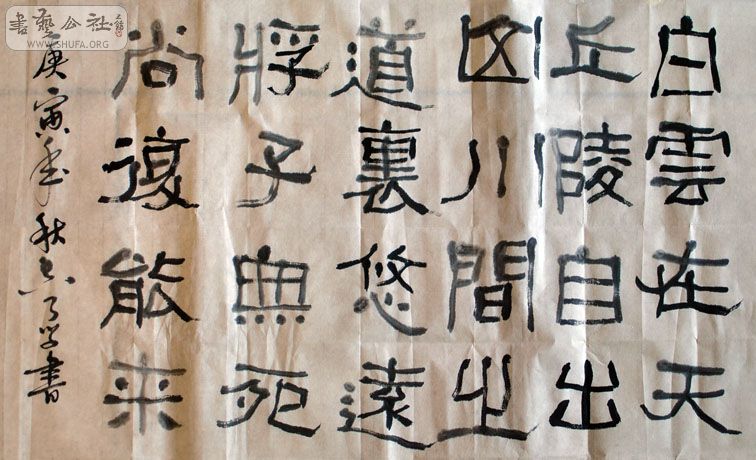 書藝公社
WWW.SHUFA.ORG
白雲在天
丘陵自出
山川間之
道裏悠遠
將子無死
尚復能来
庚寅年秋書